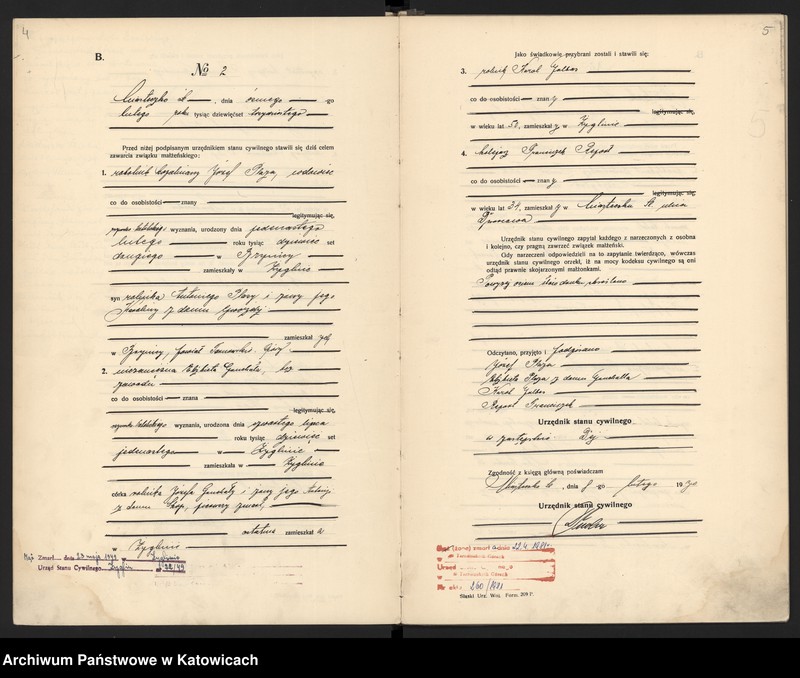 4
B.
No 2
Miasteczko , dnia ósmego -go
lutego roku tysiąc dziewięćset trzydziestego
Przed niżej podpisanym urzędnikiem stanu cywilnego stawili się dziś celem
zawarcia związku małżeńskiego:
1. robotnik Józef Płaza,
co do osobistości znany
legitymując się,
wyznania, urodzony dnia jedenastego
lutego roku tysiąc dziewięć set
drugiego w Brzynicy
zamieszkały w Żyglinie
syn rolnika Antoniego Płazy i żony jego
Karoliny z domu Gwozdy
zamieszkał
w Brzynicy, powiat
2. niezamężna Elżbieta Gandała, bez
zawodu
co do osobistości znana
legitymując się,
wyznania, urodzona dnia czwartego lipca
roku tysiąc dziewięć set
jedenastego w Żyglinie
zamieszkała w Żyglinie
córka rolnika Józefa Gandały i żony jego
z domu
ostatnia zamieszkał a
w Żyglinie
Mąż Zmarł dnia 23 maja 1949
w Żyglinie
Urząd Stanu Cywilnego Żyglin 22/49
5
Jako świadkowie przybrani zostali i stawili się:
3. rolnik Karol Jalkas
co do osobistości znan y
legitymując się,
w wieku lat 53, zamieszkał y w Żyglinie
4. kolejarz Franciszek Report
co do osobistości znan y
legitymując się,
w wieku lat 34, zamieszkał y w Miasteczku Śl. ulica
Dworcowa
Urzędnik stanu cywilnego zapytał każdego z narzeczonych z osobna
i kolejno, czy pragną zawrzeć związek małżeński.
Gdy narzeczeni odpowiedzieli na to zapytanie twierdząco, wówczas
urzędnik stanu cywilnego orzekł, iż na mocy kodeksu cywilnego są oni
odtąd prawnie skojarzonymi małżonkami.
Powyżej osiem słów druku skreślono
Odczytano, przyjęto i podpisano
Józef Płaza
Elżbieta Płaza z domu Gandalla
Karol Jalkas
Report Franciszek
Urzędnik stanu cywilnego
w zastępstwie
Zgodność z księgą główną poświadczam
, dnia 8 go lutego 1930
Urzędnik stanu cywilnego
(żona) zmarł a dnia 29.4.1981
w Tarnowskich Górach
Urząd
w Tarnowskich Górach
Nr akt. 260/1981
Śląski Urz. Woj. Form. 209 P.
Archiwum Państwowe w Katowicach